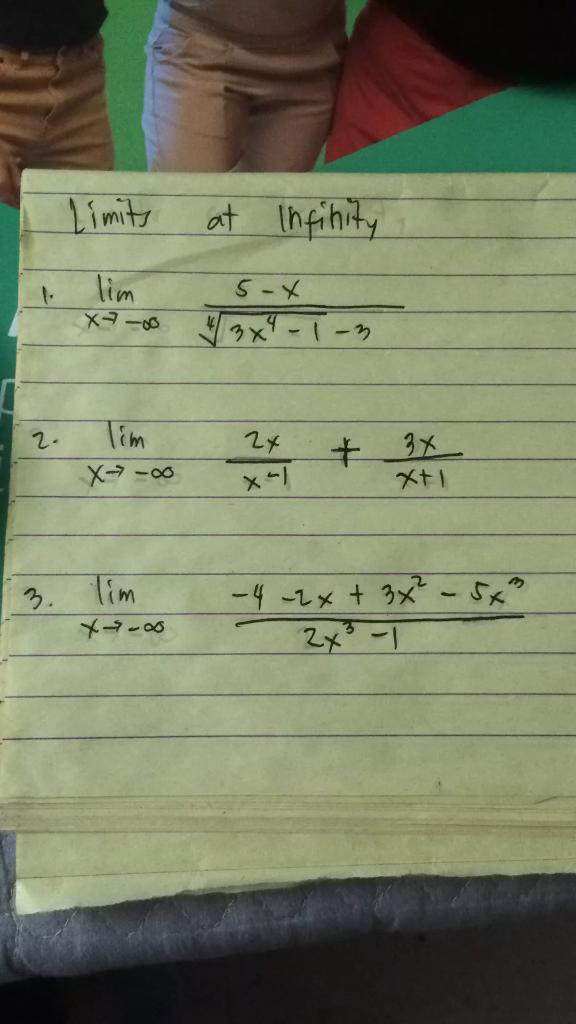 Limits at Infinity
1. lim x→-∞ (5 - x) / (∜(3x⁴ - 1) - 3)
2. lim x→-∞ 2x/(x-1) + 3x/(x+1)
3. lim x→-∞ (-4 -2x + 3x² - 5x³) / (2x³ - 1)